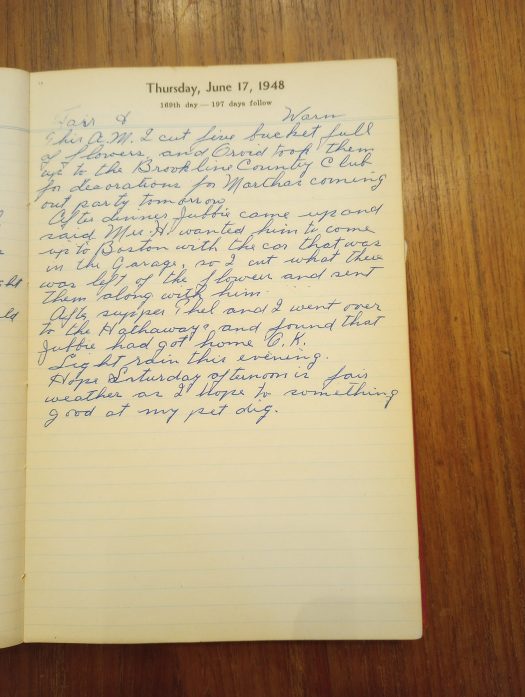 Thursday, June 17, 1948
169th day — 197 days follow
Warm
This A.M. I cut five bucket full
of flowers, and Orvid took them
up to the Brookline Country Club
for decorations for Marthas coming
out party tomorrow
After dinner Jubbie came up and
said Mrs. H. wanted him to come
up to Boston with the car that was
in the Garage, so I cut what there
was left of the flowers and sent
them along with him.
After supper Ethel and I went over
to the Hathaways and found that
Jubbie had got home O.K.
Light rain this evening.
Hope Saturday afternoon is fair
weather as I hope to something
good at my pet dig.